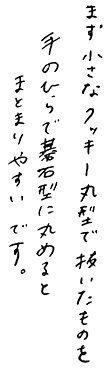 まず小さなクッキー丸型で抜いたものを
手のひらで碁石型に丸めると
まとまりやすいです。